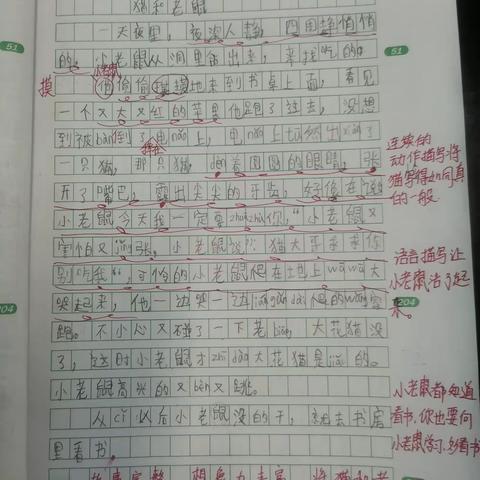 猫和老鼠
一天夜里，夜深人静，四周静悄悄
的。小老鼠从洞里钻出来，来找吃的
小老鼠
摸
偷偷摸摸地来到书桌上面，看见
一个又大又红的苹果他跑了过去，没想
到被bàn倒了电nǎo上，电nǎo上
一只猫，那只猫，着圆圆的眼睛，张
开了嘴巴，露出尖尖的牙齿，好像在说
小老鼠今天我一定要zhuā zhù你，“小老鼠又
害怕又jǐn张，小老鼠说：猫大哥求求你
别吃我“，可怜的小老鼠爬在地上wā wā大
哭起来，他一边哭一边
跑。不小心又碰了一下老biāo，大花猫没
了，这时小老鼠才zhī dào大花猫是jiǎ的。
小老鼠高兴的又bèn又跳。
从cǐ以后小老鼠没的干，就去书房
里看书。
连续的
动作描写将
猫写得如同真
的一般
语言描写让
小老鼠活了起
来。
小老鼠都知道
看书，你也要向
小老鼠学习，多看书
51
51
204
204
故事完整 想象力丰富